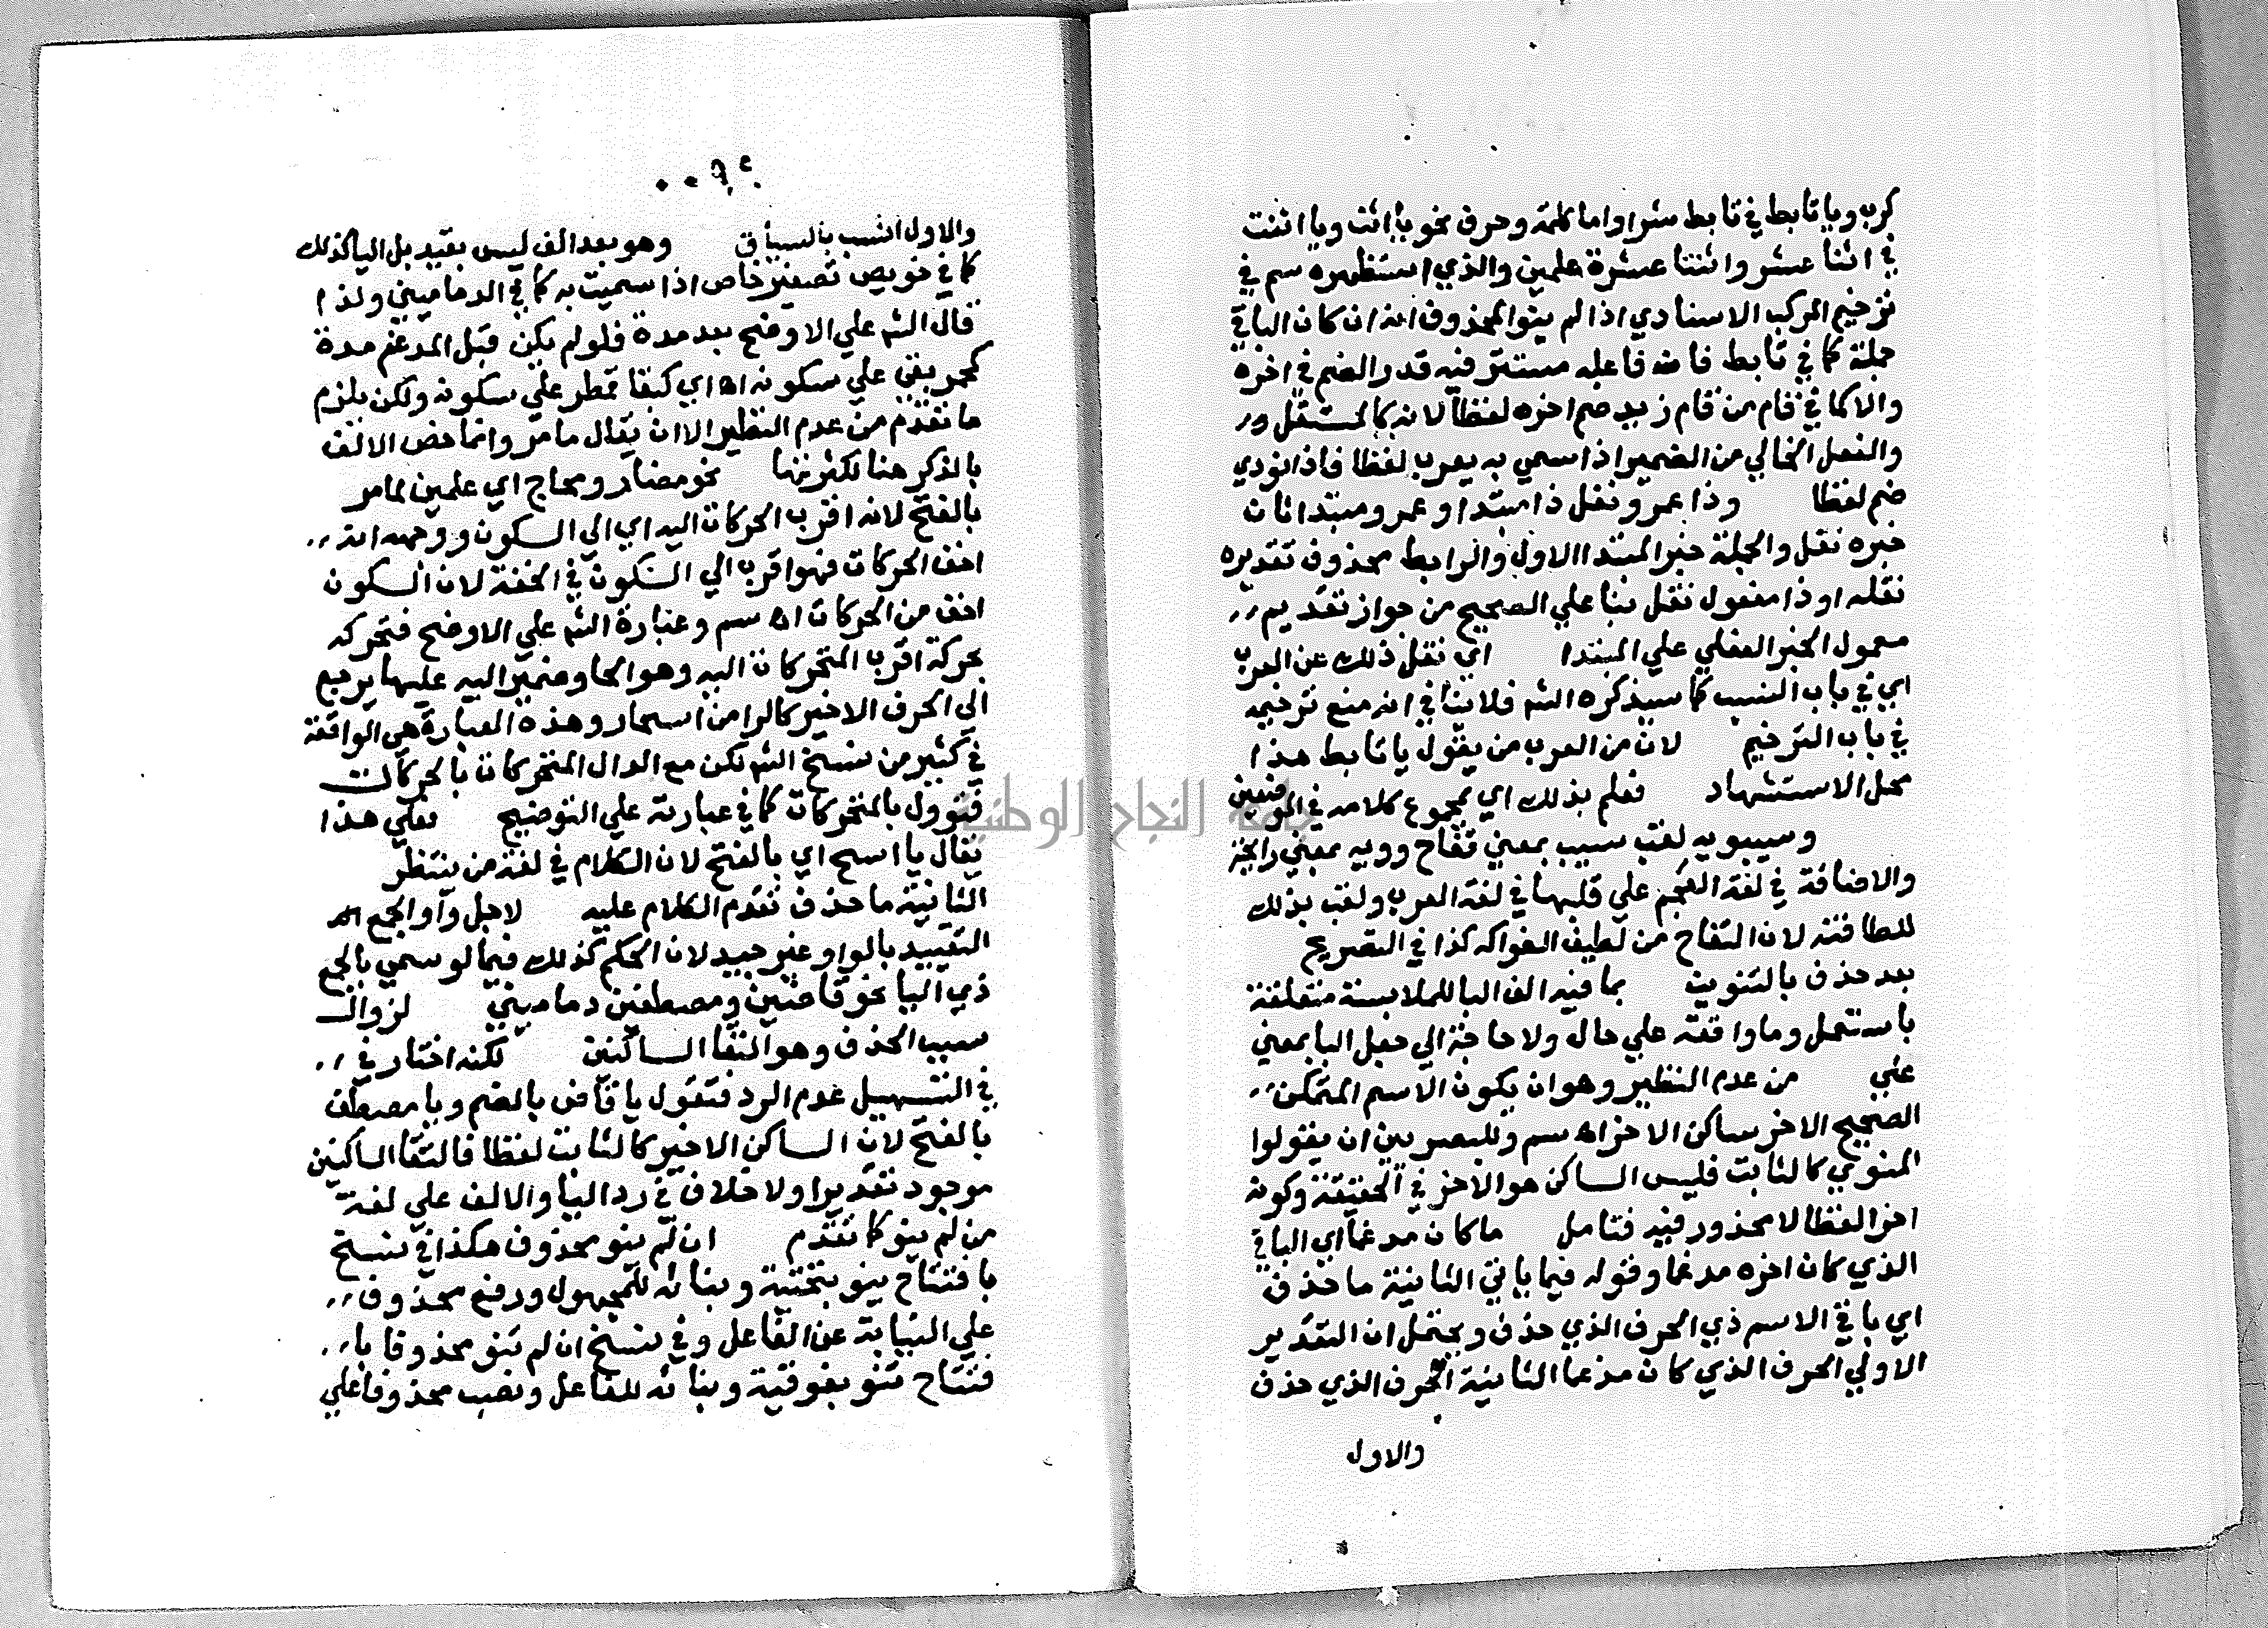 كرب ويا تابط في تابط شرا واما كلمة وحرف نحو يا اثن ويا اثنت
في اثنا عشر واثنتا عشرة علمين والذي استظهره سم في
ترخيم المركب الاسنادي اذا لم ينو المحذوف انه ان كان الباقي
جملة كما في تابط فانه فاعله مستتر فيه قدر الضم في اخره
والا كما في قام من قام زيد ضم اخره لفظا لانه كالمستقل
والفعل الخالي من الضمير اذا سمي به يعرب لفظا فاذا نودي
ضم لفظا وذا عمرو نقل ذا مبتدا وعمرو مبتدا ثان
خبره نقل والجملة خبر المبتدا الاول والرابط محذوف تقديره
نقله او ذا مفعول نقل بنا علي الصحيح من جواز تقديم
معمول الخبر الفعلي علي المبتدا اي نقل ذلك عن العرب
اي في باب النسب كما سيذكره الشم فلا ينافي انه منع ترخيمه
في باب الترخيم لان من العرب من يقول يا تابط هذا
محل الاستشهاد فعلم بذلك اي بمجموع كلامه في الموضعين
وسيبويه لقب سيب بمعني تفاح وويه بمعني رايحة
والاضافة في لغة العجم علي قلبها في لغة العرب ولقب بذلك
للطافته لان التفاح من لطيف الفواكه كذا في التصريح
بعد حذف بالتنوين بما فيه الف البا للملابسة متعلقة
باستعمل وما واقعة علي حال ولا حاجة الي جعل البا بمعني
علي من عدم النظير وهو ان يكون الاسم المتمكن
الصحيح الاخر ساكن الاخر اه سم وللبصريين ان يقولوا
المنوي كالثابت فليس الساكن هو الاخر في الحقيقة وكونه
اخرا لفظا لا محذور فيه فتامل ما كان مدغما اي الباقي
الذي كان اخره مدغما وقوله فيما ياتي الثانية ما حذف
اي باقي الاسم ذي الحرف الذي حذف ويحتمل ان التقدير
الاولي الحرف الذي كان مدغما الثانية الحرف الذي حذف
والاول
والاول انسب بالسياق وهو بعد الف ليس بقيد بل اليا كذلك
كما في خويص تصغير خاص اذا سميت به كما في الدماميني ولذا
قال الشم علي الاوضح بعد مدة فلو لم يكن قبل المدغم مدة
كمحمر بقي علي سكونه اه اي كبقا قمطر علي سكونه ولكن يلزم
ما تقدم من عدم النظير الا ان يقال ما مر وانما خص الالف
بالذكر هنا لكثرتها نحو مضار ومحاج اي علمين لما مر
بالفتح لانه اقرب الحركات اليه اي الي السكون ووجهه انه
اخف الحركات فهو اقرب الي السكون في الخفة لان السكون
اخف من الحركات اه سم وعبارة الشم علي الاوضح فتحركه
بحركة اقرب المتحركات اليه وهو الحا وضمير اليه عليها يرجع
الي الحرف الاخير كالرا من اسحار وهذه العبارة هي الواقعة
في كثير من نسخ الشم لكن مع ابدال المتحركات بالحركات
فتوول بالمتحركات كما في عبارته علي التوضيح فعلي هذا
يقال يا اسح اي بالفتح لان الكلام في لغة من ينتظر
الثانية ما حذف تقدم الكلام عليه لاجل واو الجمع الخ
التقييد بالواو غير جيد لان الحكم كذلك فيما لو سمي بالجمع
ذي اليا نحو قاضين ومصطفين دماميني لزوال
سبب الحذف وهو التقا الساكنين لكنه اختار في
في التسهيل عدم الرد فتقول يا قاض بالضم ويا مصطف
بالفتح لان الساكن الاخير كالثابت لفظا فالتقا الساكنين
موجود تقديرا ولا خلاف في رد اليا والالف علي لغة
من لم ينو كما تقدم ان لم ينو محذوف هكذا في نسخ
بافتتاح ينو بتحتية وبنائه للمجهول ورفع محذوف
علي النيابة عن الفاعل وفي نسخ ان لم تنو محذوفا با
فتتاح تنو بفوقية وبنائه للفاعل ونصب محذوفا علي
جامعة النجاح الوطنية